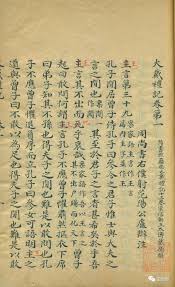 大戴禮記卷第一
周尚書右僕射范陽公盧辯注
主言第三十九
孔子閒居曾子侍孔子曰參今之君子惟士與大夫之
言之閒也其至於君子之言者甚希矣於乎吾
主言其不出而死乎哀哉曾子
起曰敢問何謂主言孔子不應曾子懼肅然摳衣下席
曰弟子知其不孫也得夫子之閒也難是以敢問也孔
子不應曾子懼退負序而立孔子曰參女可語明主之
道與曾子曰不敢以為足也得夫子之閒也難是以敢